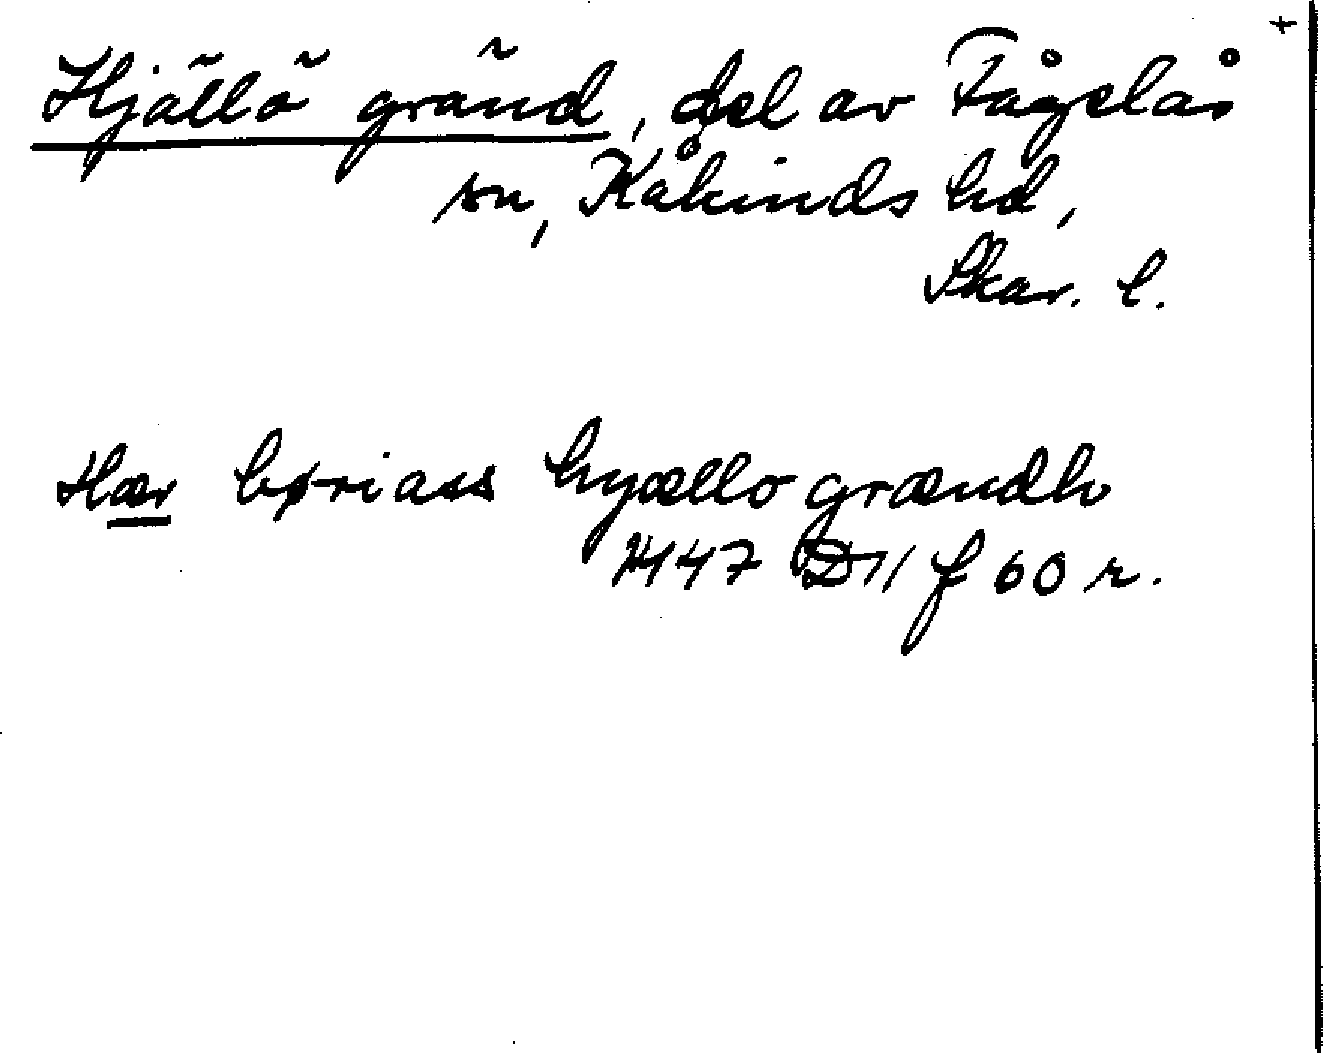 +
Hjällö gränd, del av Fågelås
sn, Kåkinds hd,
Skar. l.
Hær børiass hyællo grændh
1447 D 11 f 60 r.